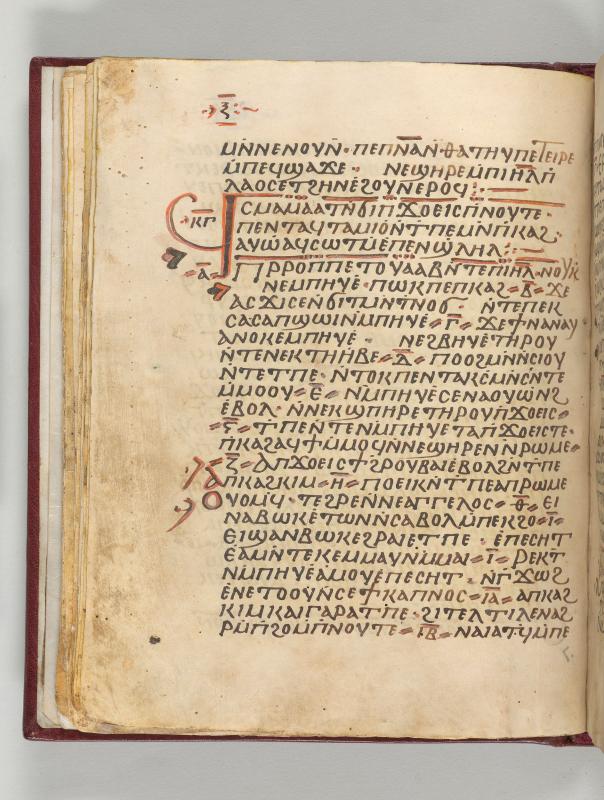 ⲝ̅
ⲙⲛ̄ⲛⲉⲛⲟⲩⲛ̄· ⲡⲉⲡⲛ̅ⲁ̅ ⲛ̄·ⲑⲁⲧⲏⲩⲡⲉⲧⲉⲓⲣⲉ
ⲙ̄ⲡⲉϥϣⲁϫⲉ· ⲛⲉϣⲏⲣⲉⲙⲡⲓⲏ̅ⲗ̅ⲡ̄
ⲗⲁⲟⲥⲉⲧϩⲏⲛⲉϩⲟⲩⲛⲉⲣⲟϥ:
ⲕⲅ̅
ϥⲥⲙⲁⲙⲁⲁⲧⲛ̄ϭⲓⲡϫⲟⲉⲓⲥⲡⲛⲟⲩⲧⲉ·
ⲡⲉⲛⲧⲁϥⲧⲁⲙⲓⲟⲛ̄ⲧⲡⲉⲙⲛ̄ⲡⲕⲁϩ·
ⲁⲩⲱⲁϥⲥⲱⲧⲙ̄ⲉⲡⲉⲛϣⲗⲏⲗ:
ⲁ̅ ⲡⲣⲣⲟⲡⲡⲉⲧⲟⲩⲁⲁⲃⲛ̄ⲧⲉⲡⲓⲏⲗ·ⲛⲟⲩⲕ
ⲛⲉⲙⲡⲏⲩⲉ̀· ⲡⲱⲕⲡⲉⲡⲕⲁϩ ⲃ̅ ϫⲉ
ⲁⲥϫⲓⲥⲉⲛ̄ϭⲓⲧⲙⲛⲧⲛⲟϭ· ⲛ̄ⲧⲉⲡⲉⲕ
ⲥⲁⲥⲁⲡϣⲱⲓⲛ̄ⲙⲡⲏⲩⲉ̀ ⲅ̅ ϫⲉϯⲛⲁⲛⲁⲩ
ⲁⲛⲟⲕⲉⲙⲡⲏⲩⲉ̀· ⲛⲉϩⲃⲏⲩⲉ̀ⲧⲏⲣⲟⲩ
ⲛ̄ⲧⲉⲛⲉⲕⲧⲏⲏⲃⲉ ⲇ̅ ⲡⲟⲟϩⲙⲛ̄ⲛ̄ⲥⲓⲟⲩ
ⲛ̄ⲧⲉⲧⲡⲉ· ⲛ̄ⲧⲟⲕⲡⲉⲛⲧⲁⲕⲥⲙⲛ̄ⲥⲛ̄ⲧⲉ
ⲙ̄ⲙⲟⲟⲩ ⲉ̅ ⲛⲙ̄ⲡⲏⲩⲉ̀ⲥⲉⲛⲁⲟⲩⲱⲛϩ
ⲉ̀ⲃⲟⲗ· ⲛ̄ⲛⲉⲕϣⲡⲏⲣⲉⲧⲏⲣⲟⲩⲡ̄ϫⲟⲉⲓⲥ
ⲋ̅ ⲧⲡⲉⲛ̄ⲧⲉⲛⲙⲡⲏⲩⲉ̀ⲧⲁⲡϫⲟⲉⲓⲥⲧⲉ·
ⲡ̄ⲕⲁϩⲁϥϯⲙⲙⲟϥⲛ̄ⲛⲉϣⲏⲣⲉⲛⲛ̄ⲣⲱⲙⲉ
ⲍ̅ ⲁⲡϫⲟⲉⲓⲥϯϩⲣⲟⲩⲃⲁⲓⲉ̀ⲃⲟⲗϩⲛ̄ⲧⲡⲉ
ⲁⲡⲕⲁϩⲕⲓⲙ ⲏ̅ ⲡⲟⲉⲓⲕⲛ̄ⲧⲡⲉⲁⲡⲣⲱⲙⲉ
ⲟⲩⲟⲙϥ· ⲧⲉϩⲣⲉⲛ̄ⲛⲉⲁⲅⲅⲉⲗⲟⲥ ⲑ̅ ⲉⲓ
ⲛⲁⲃⲱⲕⲉ̀ⲧⲱⲛⲛ̄ⲥⲁⲃⲟⲗⲙ̄ⲡⲉⲕϩⲟ ⲓ̅
ⲉⲓϣⲁⲛⲃⲱⲕⲉϩⲣⲁⲓⲉⲧⲡⲉ· ⲉ̀ⲡⲉⲥⲏⲧ
ⲉⲁⲙⲛ̄ⲧⲉⲕⲉⲙⲙⲁⲩⲛⲙ̄ⲙⲁⲓ ⲓ̅ ⲣⲉⲕⲧ
ⲛⲙ̄ⲡⲏⲩⲉ̀ⲁⲙⲟⲩⲉ̀ⲡⲉⲥⲏⲧ· ⲛ̄ⲅϫⲱϩ
ⲉ̀ⲛⲉⲧⲟⲟⲩⲛ̄ⲥⲉϯⲕⲁⲡⲛⲟⲥ ⲓ̅ⲁ̅ ⲁⲡⲕⲁϩ
ⲕⲓⲙⲕⲁⲓⲅⲁⲣⲁⲧⲡⲉ· ϩⲓⲧⲉⲗϯⲗⲉⲛⲁϩ
ⲣⲙ̄ⲡϩⲟⲙ̄ⲡⲛⲟⲩⲧⲉ ⲓ̅ⲃ̅ ⲛⲁⲓⲁⲧϥⲙ̄ⲡⲉ